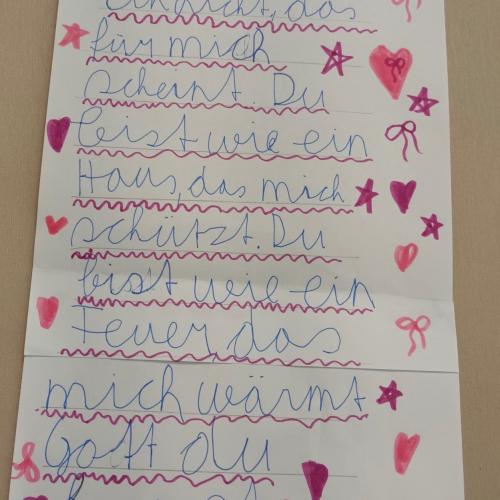 ein Licht, das
für mich
scheint. Du
bist wie ein
Haus, das mich
schützt. Du
bist wie ein
Feuer, das
mich wärmt
Gott du